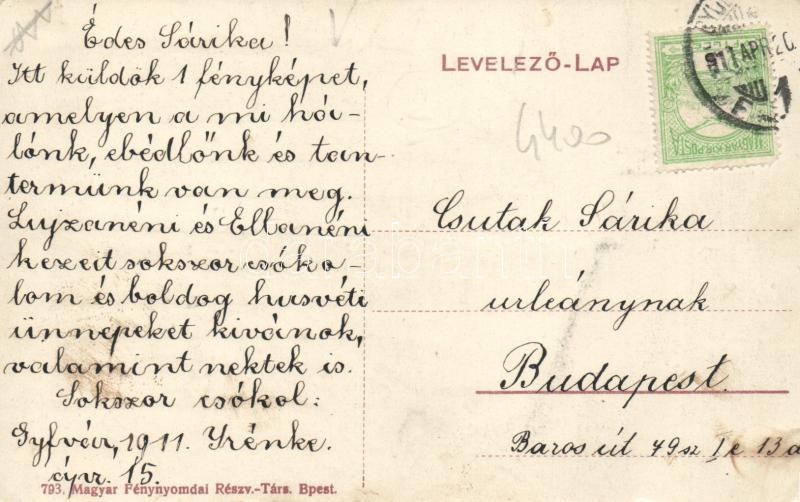 Édes Sárika!
Itt küldök 1 fényképet,
amelyen a mi há-
lónk, ebédlőnk és tan-
termünk van meg.
Lujzanéni és Ellanéni
kezeit sokszor csóko-
lom és boldog husvéti
ünnepeket kivánok,
valamint nektek is.
Sokszor csókol:
Gyfvár, 1911. Irénke.
ápr. 15.
793. Magyar Fénynyomdai Részv.-Társ. Bpest.
LEVELEZŐ-LAP
911 APR 20
MAGYAR KIR. POSTA
4400
Csutak Sárika
urleánynak
Budapest.
Baros út 49 sz I e 13 a